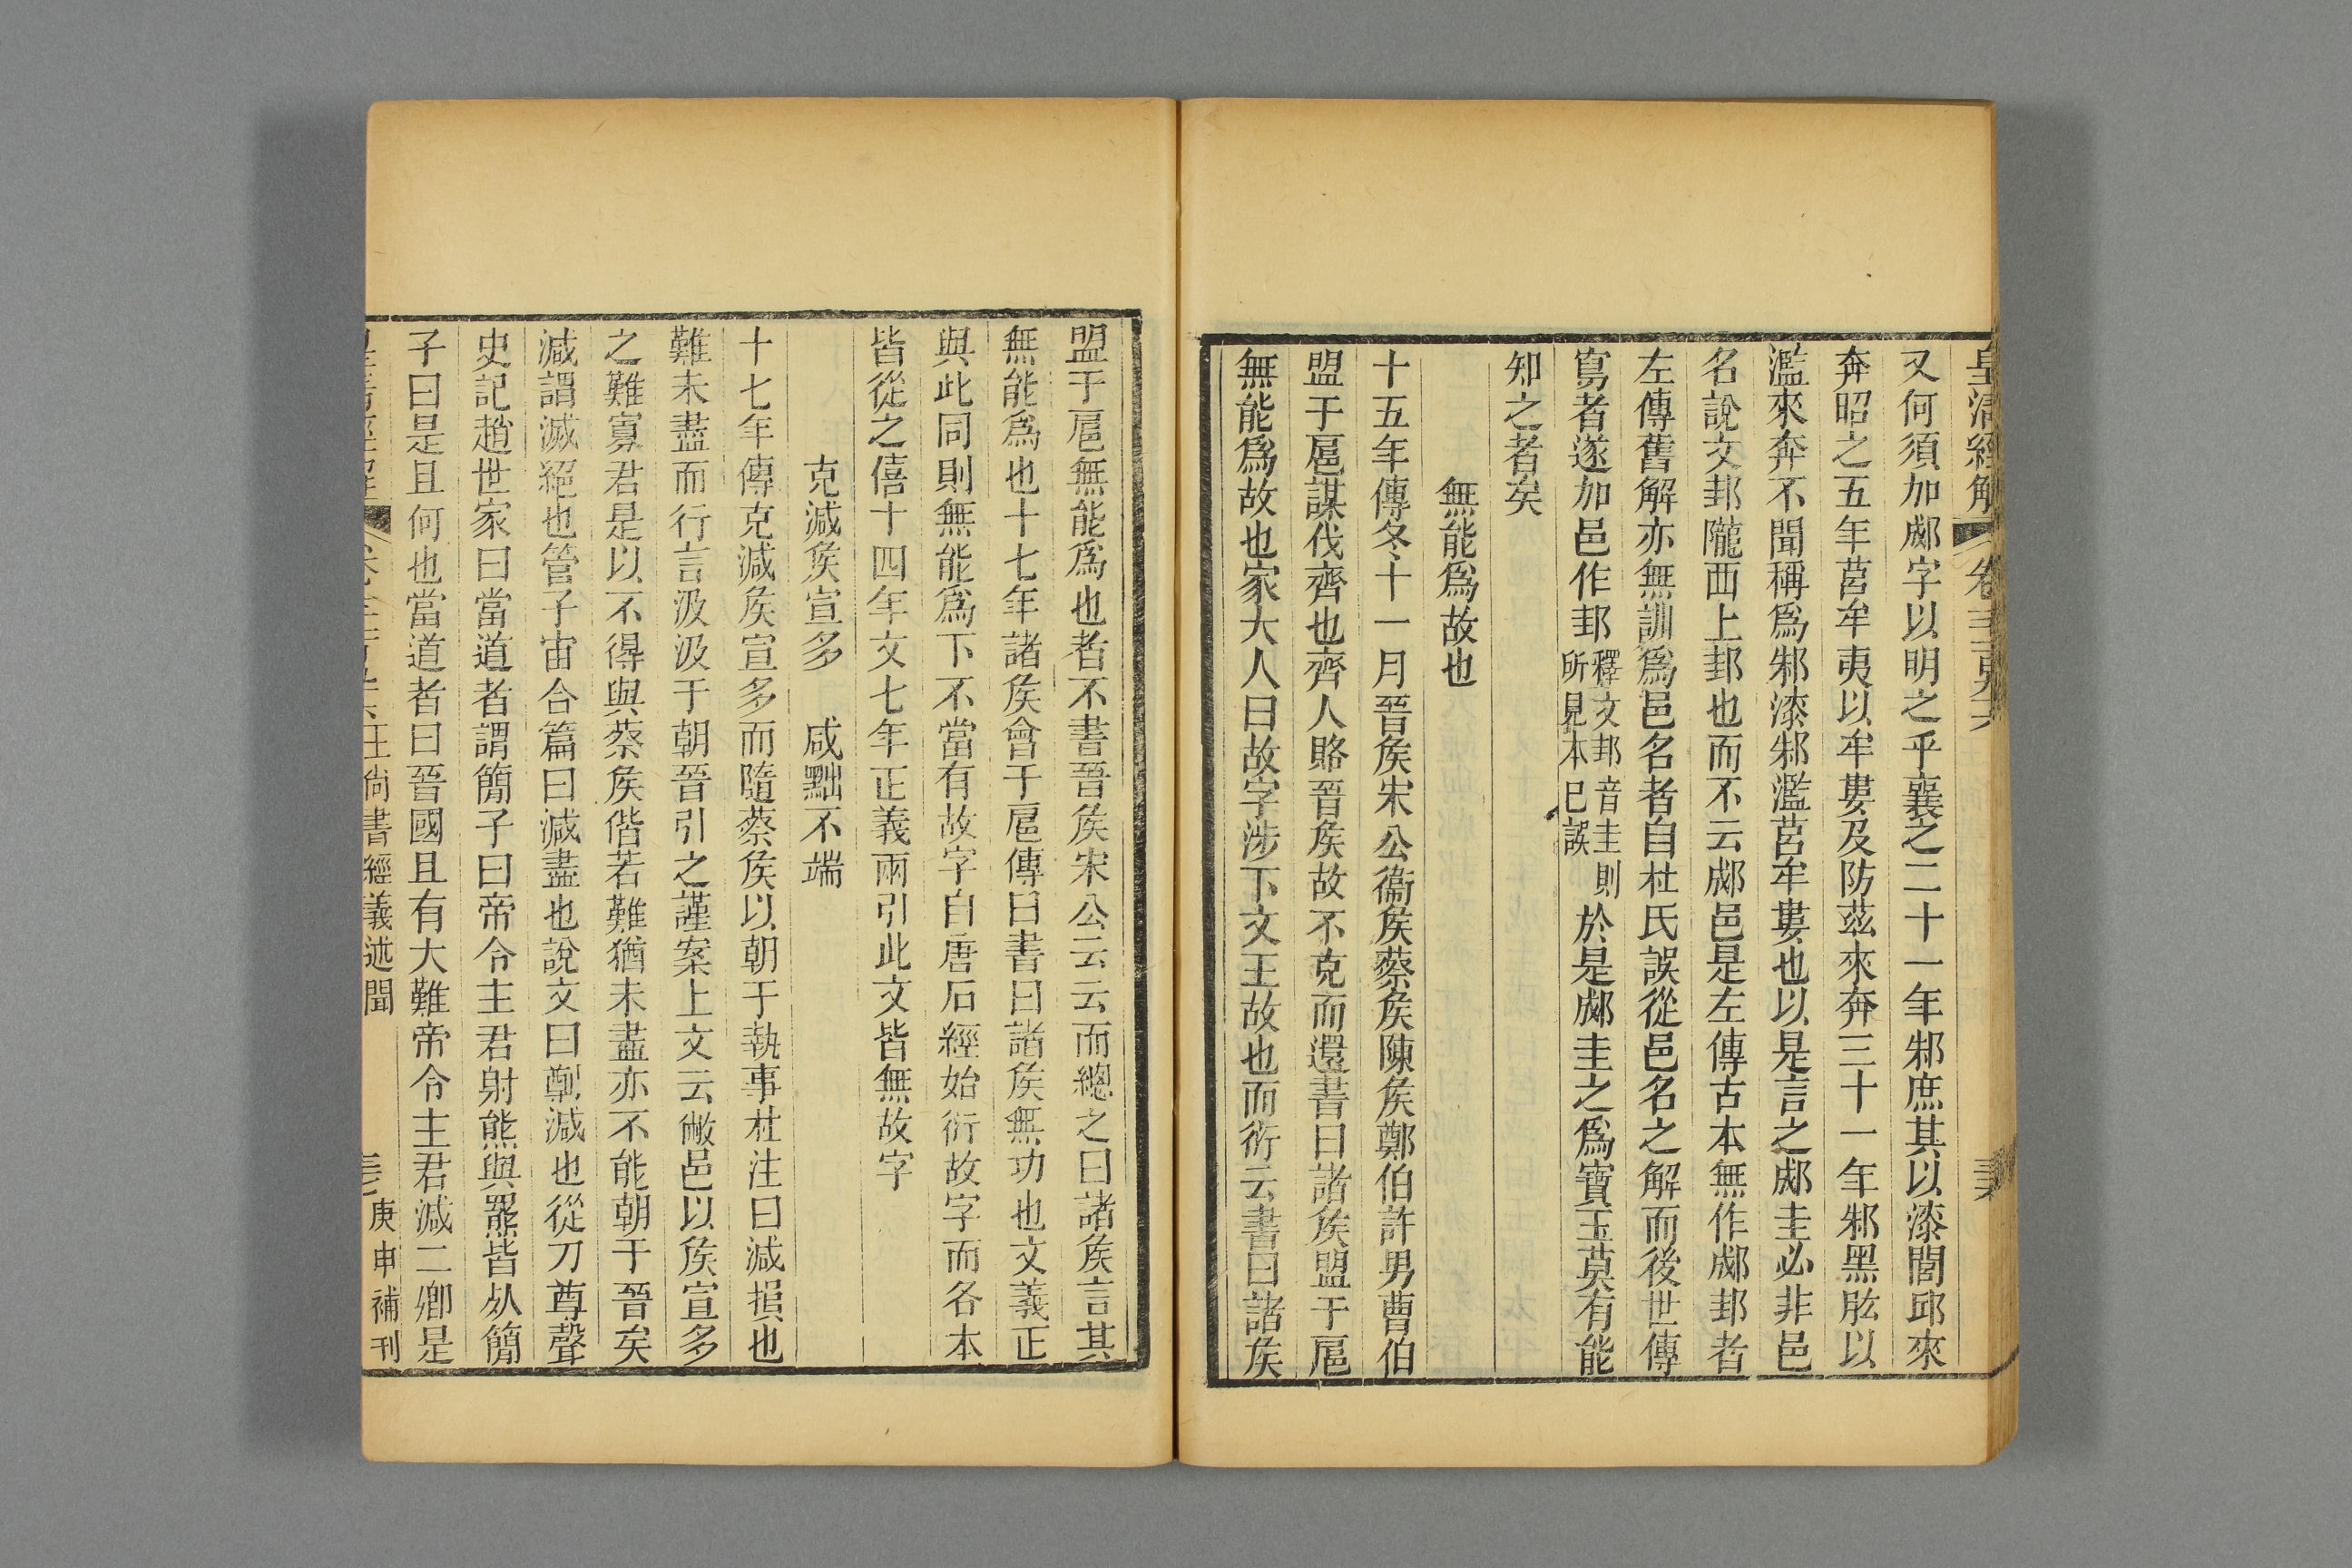 皇清經解
又何須加郕字以明之乎襄之二十一年邾庶其以漆閭邱來
奔昭之五年莒牟夷以牟婁及防茲來奔三十一年邾黑肱以
濫來奔不聞稱爲邾漆邾濫莒牟婁也以是言之郕圭必非邑
名說文邽隴西上邽也而不云郕邑是左傳古本無作郕邽者
左傳舊解亦無訓爲邑名者自杜氏誤從邑名之解而後世傳
寫者遂加邑作邽釋文邽音圭則所見本已誤於是郕圭之爲寶玉莫有能
知之者矣
無能爲故也
十五年傳冬十一月晉矦宋公衞矦蔡矦陳矦鄭伯許男曹伯
盟于扈謀伐齊也齊人賂晉矦故不克而還書曰諸矦盟于扈
無能爲故也家大人曰故字涉下文王故也而衍云書曰諸矦
盟于扈無能爲也者不書晉矦宋公云云而總之曰諸矦言其
無能爲也十七年諸矦會于扈傳曰書曰諸矦無功也文義正
與此同則無能爲下不當有故字自唐石經始衍故字而各本
皆從之僖十四年文七年正義兩引此文皆無故字
克減矦宣多　咸黜不端
十七年傳克減矦宣多而隨蔡矦以朝于執事杜注曰減損也
難未盡而行言汲汲于朝晉引之謹案上文云敝邑以矦宣多
之難寡君是以不得與蔡矦偕若難猶未盡亦不能朝于晉矣
減謂滅絕也管子宙合篇曰減盡也說文曰劕減也從刀尊聲
史記趙世家曰當道者謂簡子曰帝令主君射熊與羆皆死簡
子曰是且何也當道者曰晉國且有大難帝令主君減二卿是
王尙書經義述聞
庚申補刊